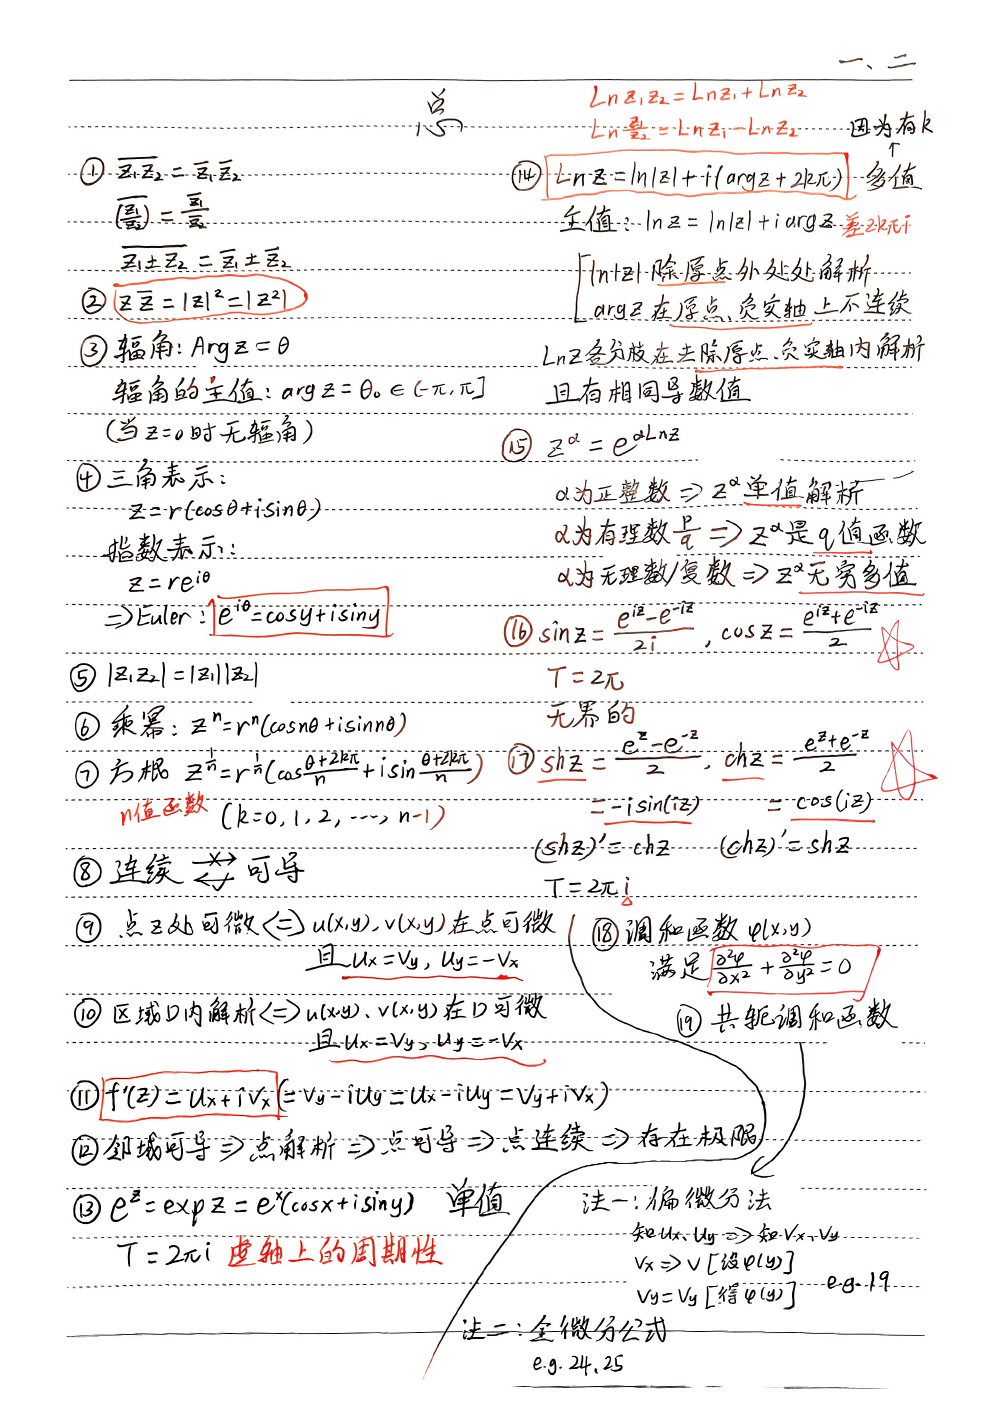 一、二
总
① \overline{z₁z₂} = \overline{z₁} \overline{z₂}
\overline{(z₁/z₂)} = \overline{z₁}/\overline{z₂}
\overline{z₁±z₂} = \overline{z₁}±\overline{z₂}
② z\overline{z} = |z|² = |z²|
③ 辐角: Arg z = θ
辐角的主值: arg z = θ₀ ∈ (-π,π]
(当 z=0 时无辐角)
④ 三角表示:
z = r(cosθ+isinθ)
指数表示:
z = re^{iθ}
⇒ Euler: e^{iθ}=cosy+isiny
⑤ |z₁z₂| = |z₁||z₂|
⑥ 乘幂: zⁿ=rⁿ(cosnθ+isinnθ)
⑦ 方根 z^{1/n}=r^{1/n}(cos (θ+2kπ)/n + isin (θ+2kπ)/n)
n值函数 (k=0,1,2,…,n-1)
⑧ 连续 ⇸ ← 可导
⑨ 点z处可微 <=> u(x,y),v(x,y)在点可微
且 ux=vy, uy=-vx
⑩ 区域D内解析 <=> u(x,y)、v(x,y)在D可微
且 ux=vy、uy=-vx
⑪ f'(z) = ux+ivx (=vy-iuy=ux-iuy=vy+ivx)
⑫ 邻域可导 ⇒ 点解析 ⇒ 点可导 ⇒ 点连续 ⇒ 存在极限
⑬ e^z = exp z = e^x(cosx+isiny) 单值
T=2πi 虚轴上的周期性
Ln z₁z₂ = Lnz₁+Lnz₂
Ln z₁/z₂ = Lnz₁-Lnz₂
因为有k
↑
⑭ Ln z = ln|z|+i(argz+2kπ) 多值
主值: ln z = ln|z|+i arg z 差2kπi
ln|z| 除原点外处处解析
argz 在原点、负实轴上不连续
Lnz各分肢在去除原点、负实轴内解析
且有相同导数值
⑮ z^α = e^{αLnz}
α为正整数 ⇒ z^α单值解析
α为有理数 p/q ⇒ z^α是q值函数
α为无理数/复数 ⇒ z^α无穷多值
⑯ sinz = (e^{iz}-e^{-iz})/2i , cosz = (e^{iz}+e^{-iz})/2
T=2π
无界的
⑰ shz = (e^z-e^{-z})/2 , chz = (e^z+e^{-z})/2
=-isin(iz) = cos(iz)
(shz)'=chz (chz)'=shz
T=2πi
⑱ 调和函数 φ(x,y)
满足 ∂²φ/∂x² + ∂²φ/∂y² = 0
⑲ 共轭调和函数
法一: 偏微分法
知ux、uy ⇒ 知vx、vy
vx ⇒ v [设φ(y)]
vy=vy [得φ(y)] e.g.19
法二: 全微分公式
e.g.24,25